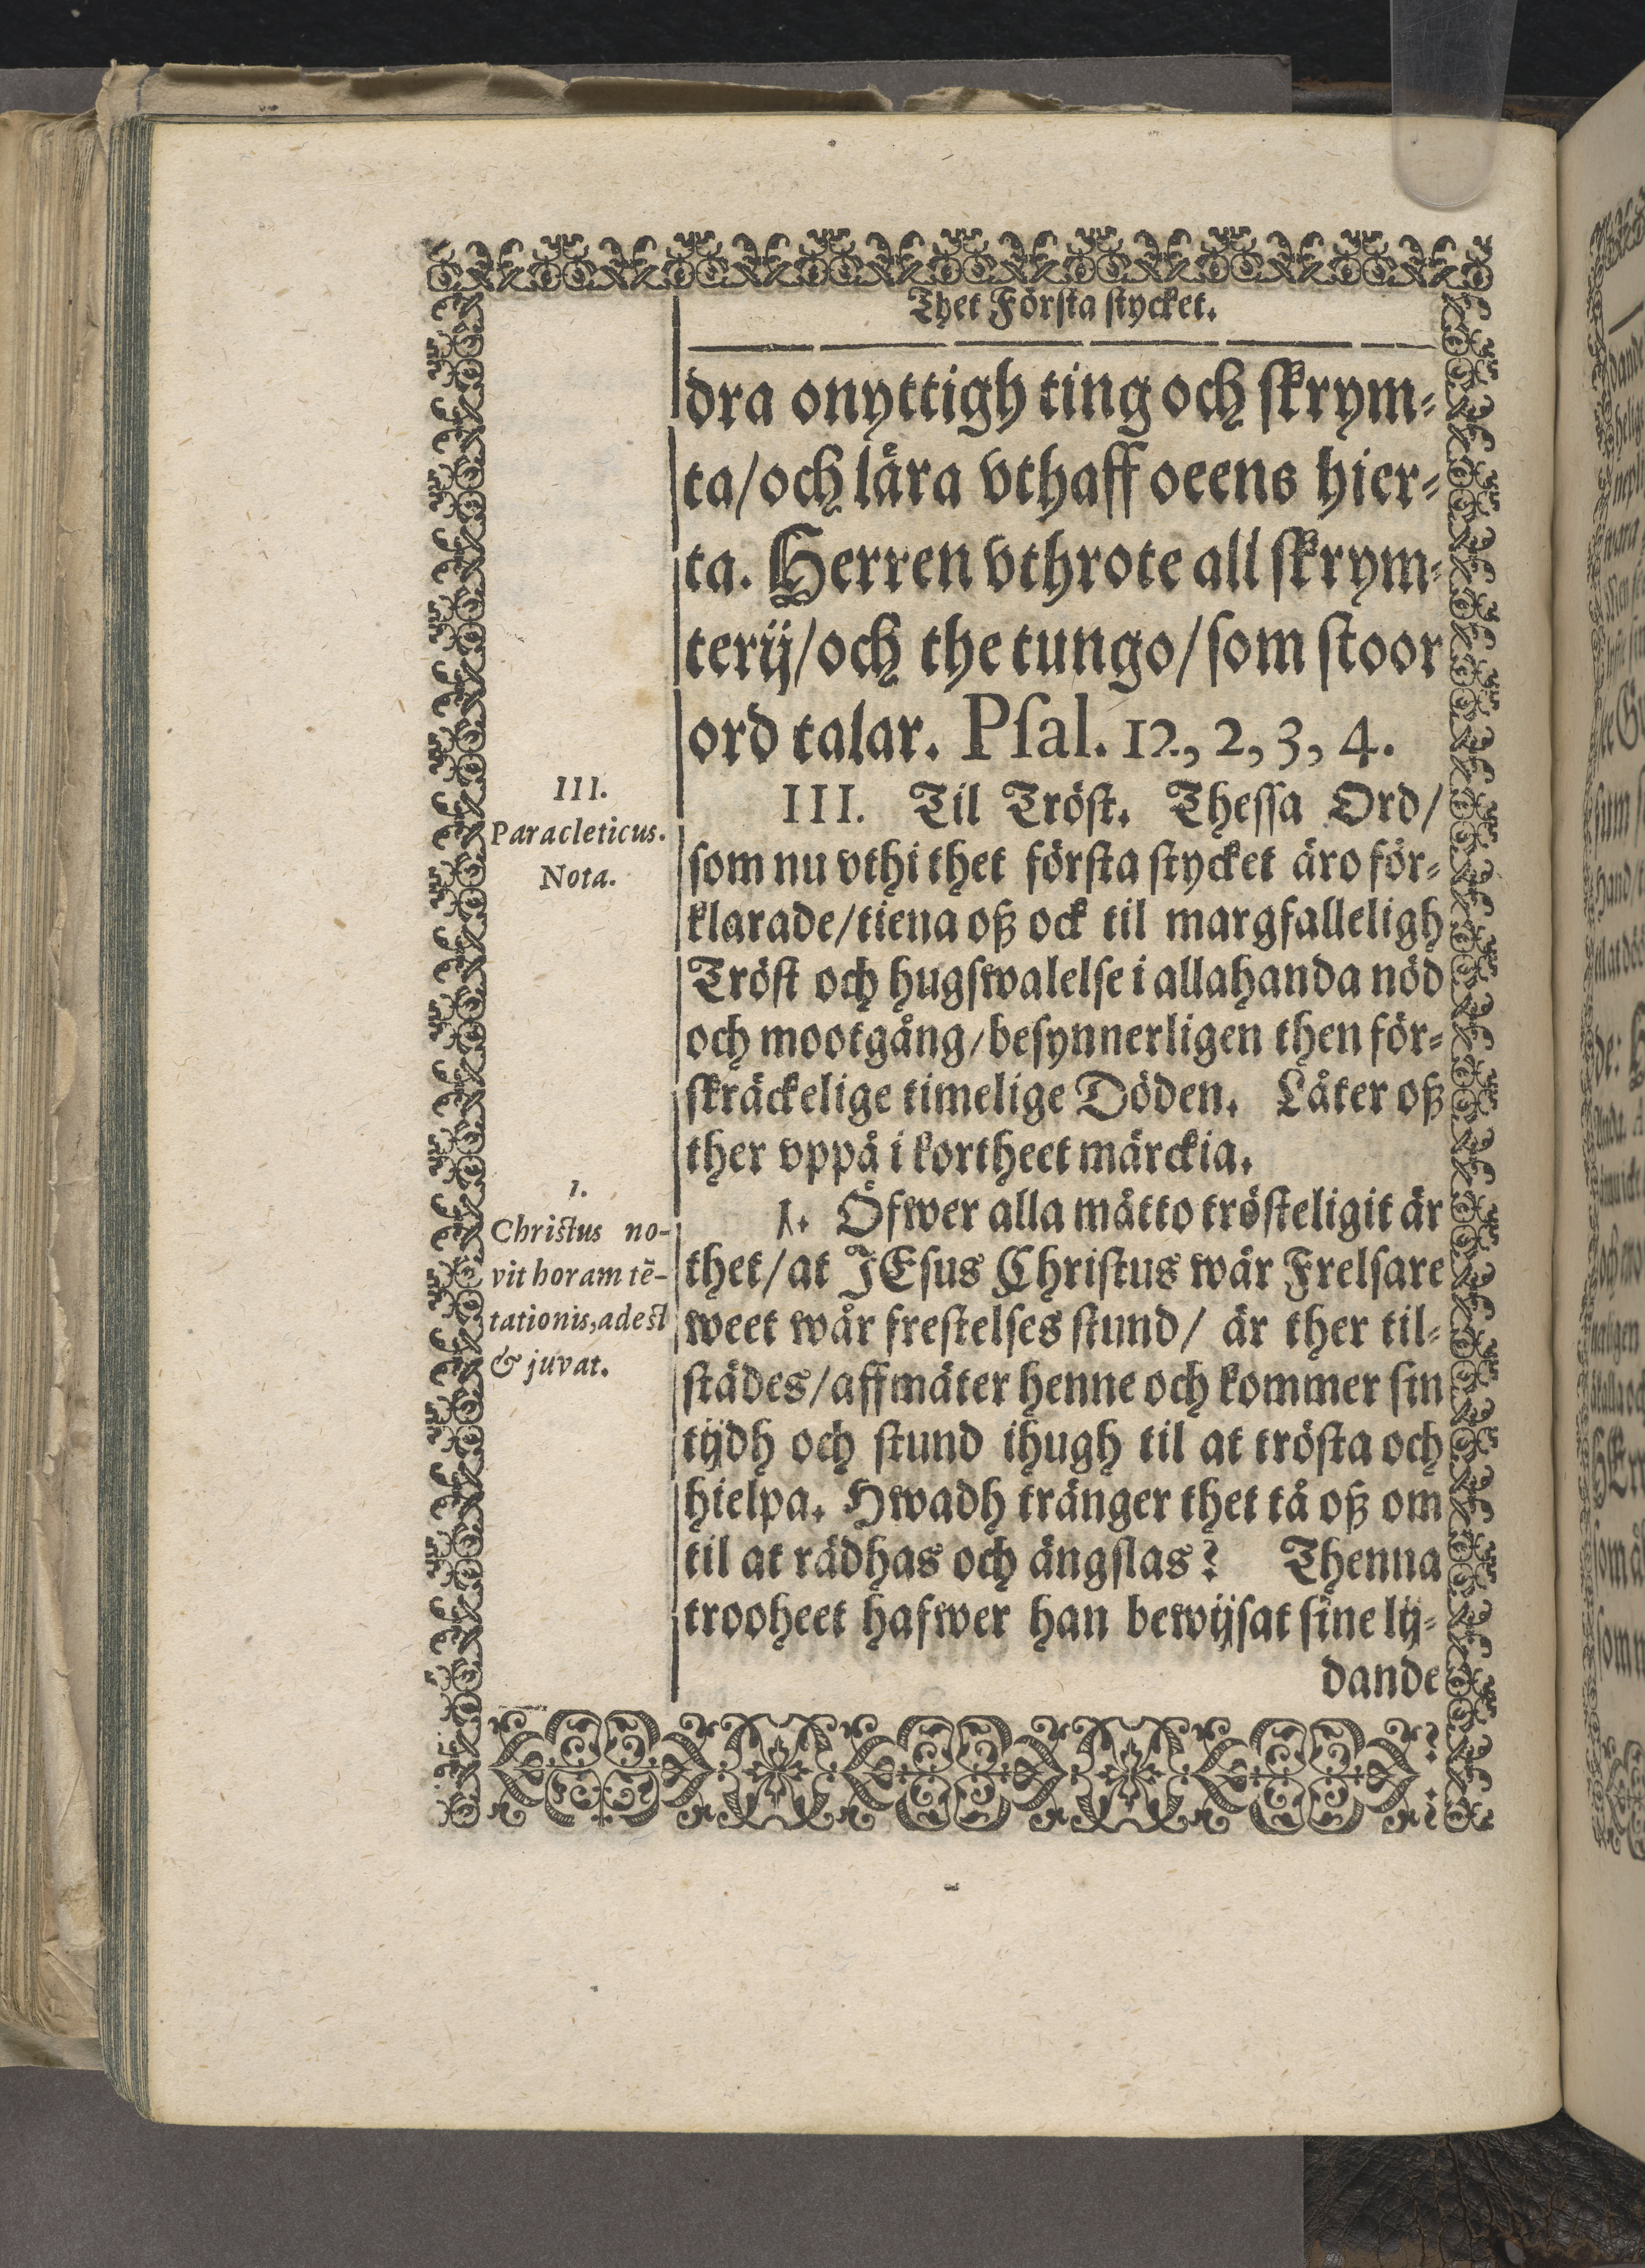 Thet Första stycket.
dra onyttigh ting och skrym-
ta/och lära vthaff oeens hier-
ta. Herren vthrote all skrym-
terij/och the tungo/som stoor
ord talar. Psal. 12, 2, 3, 4.
III.
Paracleticus.
Nota.
III. Til Tröst. Thessa Ord/
som nu vthi thet första stycket äro för-
klarade/tiena oß ock til margfalleligh
Tröst och hugswalelse i allahanda nöd
och mootgång/besynnerligen then för-
skräckelige timelige Döden. Låter oß
ther vppå i kortheet märckia.
1.
Christus no-
vit horam tē-
tationis, adest
& juvat.
1. Öfwer alla måtto trösteligit är
thet/at JEsus Christus wår Frelsare
weet wår frestelses stund/ är ther til-
städes/affmäter henne och kommer sin
tijdh och stund ihugh til at trösta och
hielpa. Hwadh tränger thet tå oß om
til at rädhas och ängslas? Thenna
trooheet hafwer han bewijsat sine lij-
dande